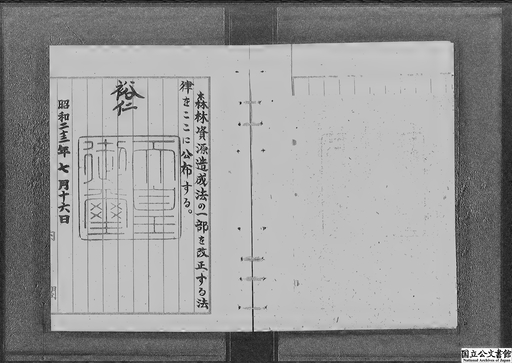 森林資源造成法の一部を改正する法
律をここに公布する。
裕仁
天皇
御璽
昭和二十三年七月十六日
国立公文書館
National Archives of Japan